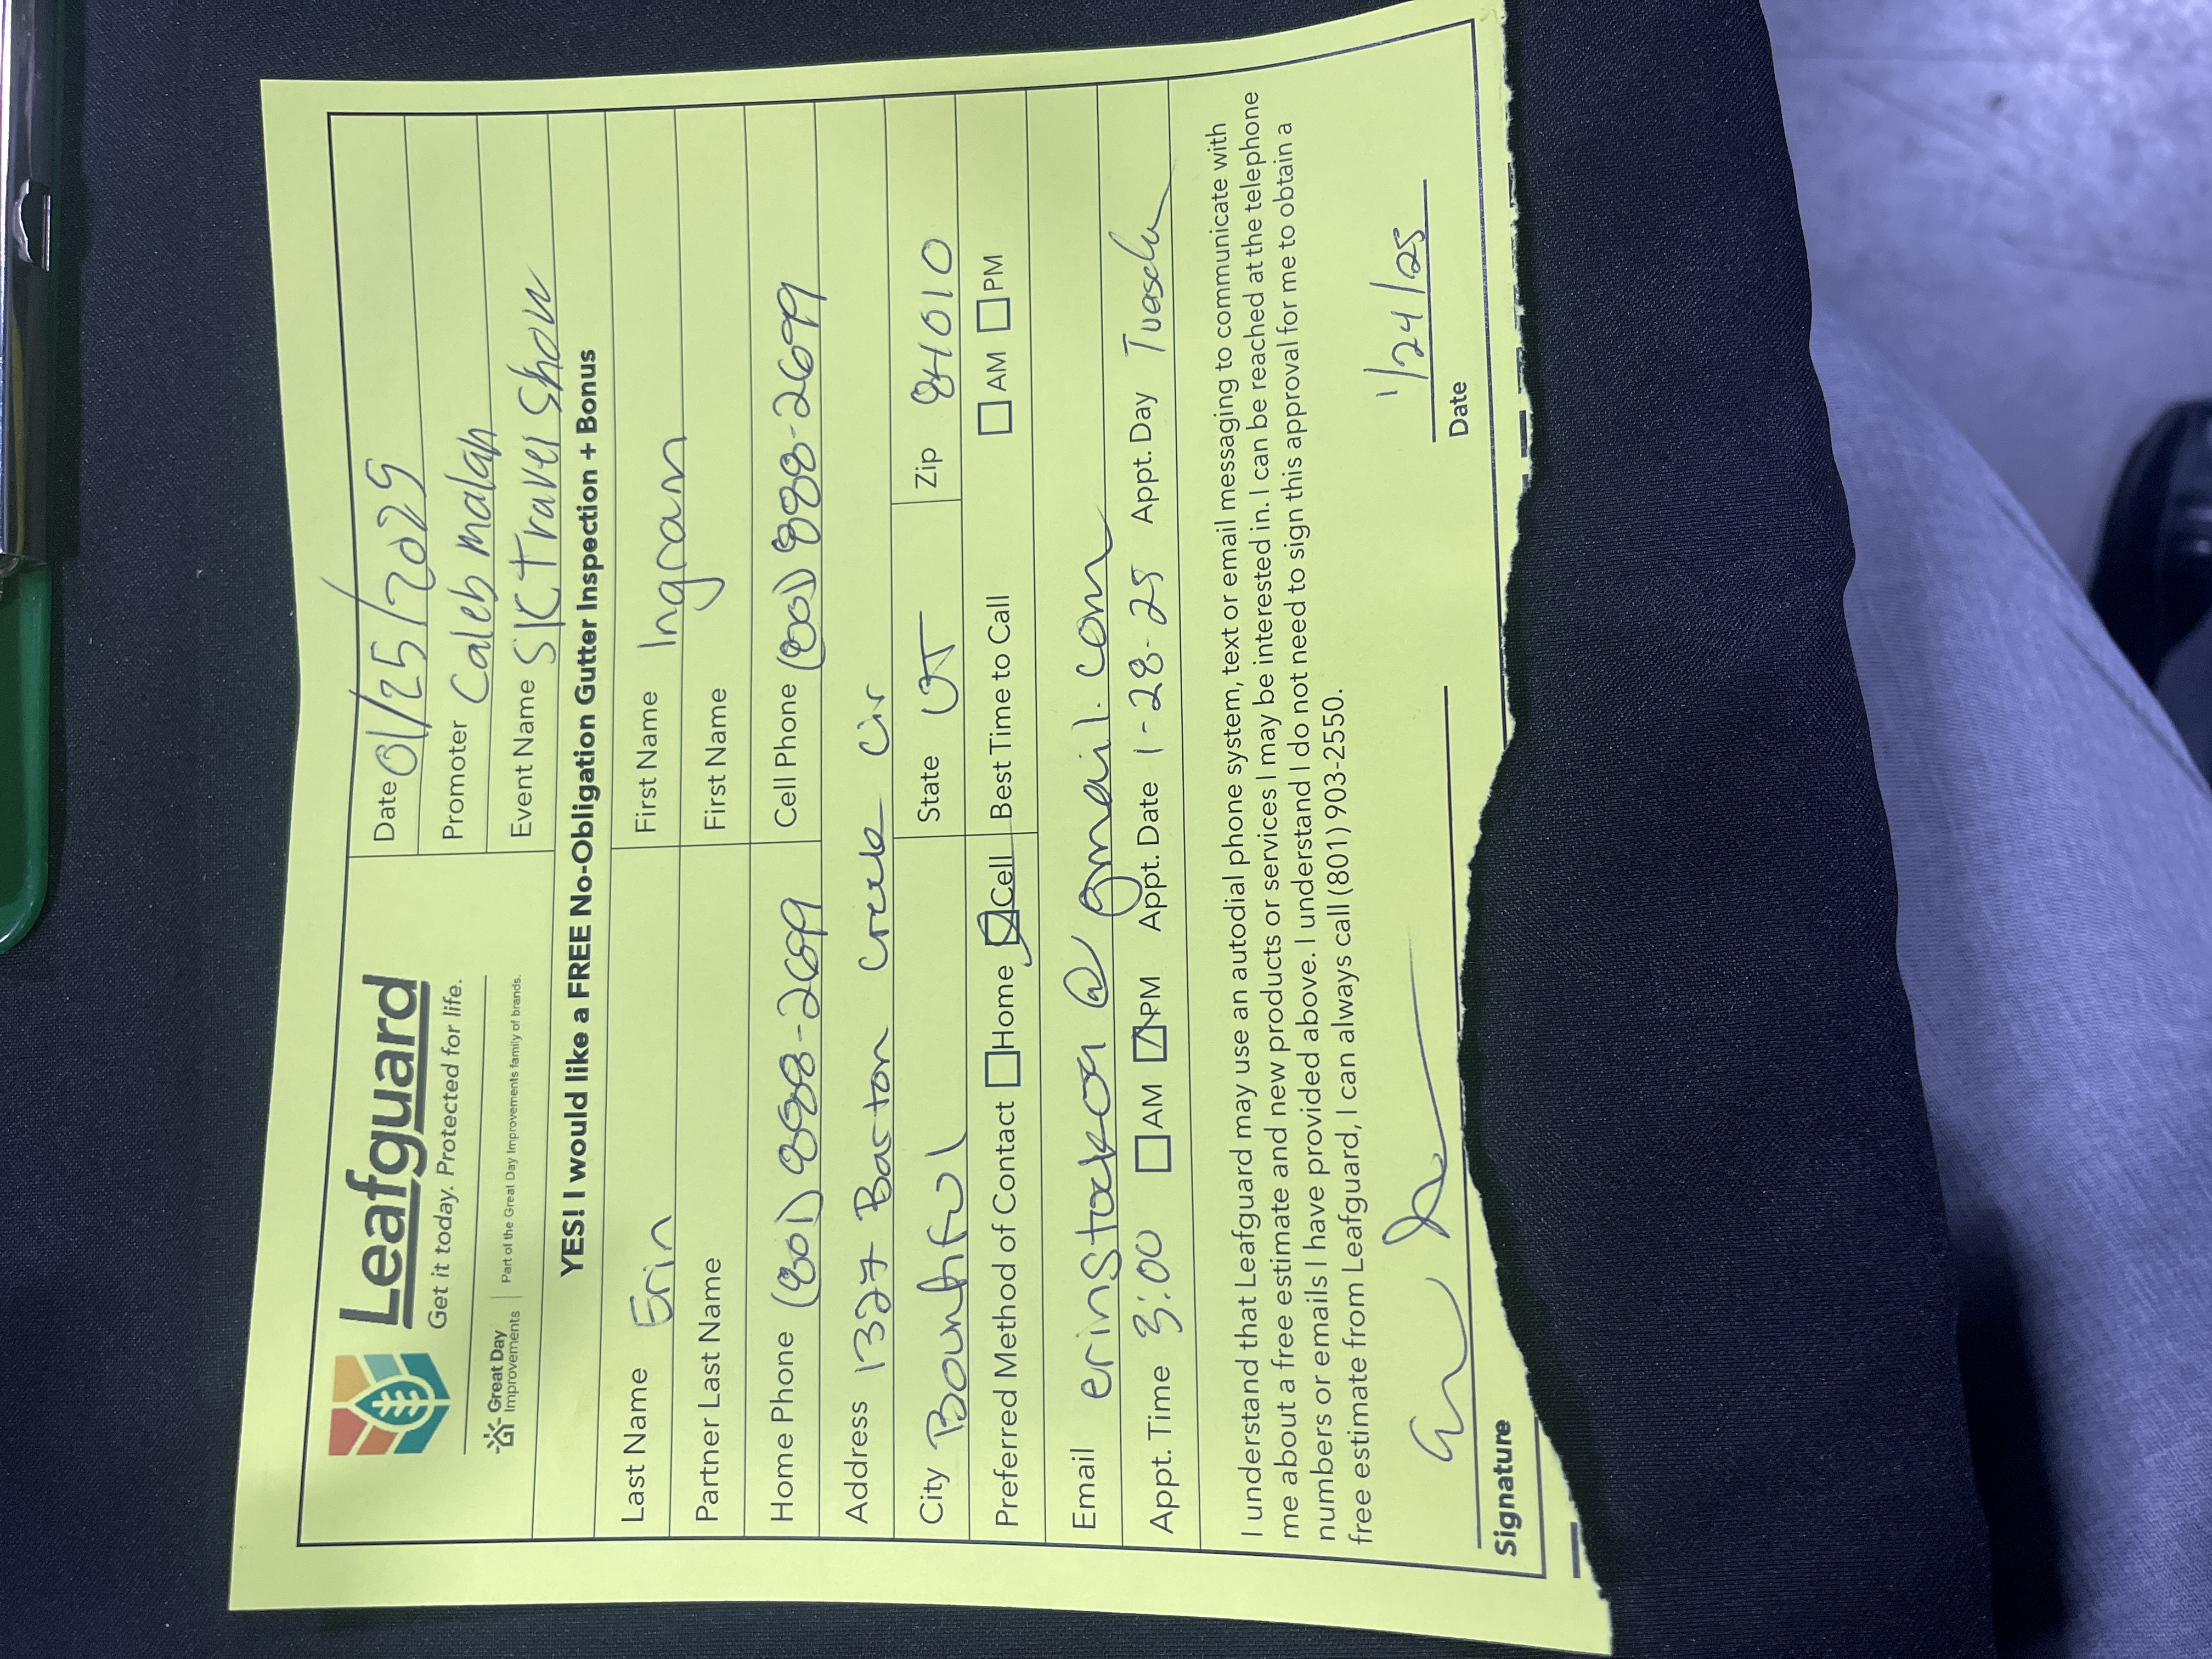 Leafguard
Get it today. Protected for life.
Great Day Improvements
Part of the Great Day Improvements family of brands.
Date 01/25/2025
Promoter Caleb Malan
Event Name SLC Travel Show
YES! I would like a FREE No-Obligation Gutter Inspection + Bonus
Last Name Erin First Name Ingram
Partner Last Name First Name
Home Phone (801) 888-2699 Cell Phone (801) 888-2699
Address 1327 Barton Creek Cir
City Bountiful State UT Zip 84010
Preferred Method of Contact Home Cell Best Time to Call AM PM
Email erinstock09@gmail.com
Appt. Time 3:00 AM PM Appt. Date 1-28-25 Appt. Day Tuesda
I understand that Leafguard may use an autodial phone system, text or email messaging to communicate with
me about a free estimate and new products or services I may be interested in. I can be reached at the telephone
numbers or emails I have provided above. I understand I do not need to sign this approval for me to obtain a
free estimate from Leafguard, I can always call (801) 903-2550.
1/24/25
Signature Date